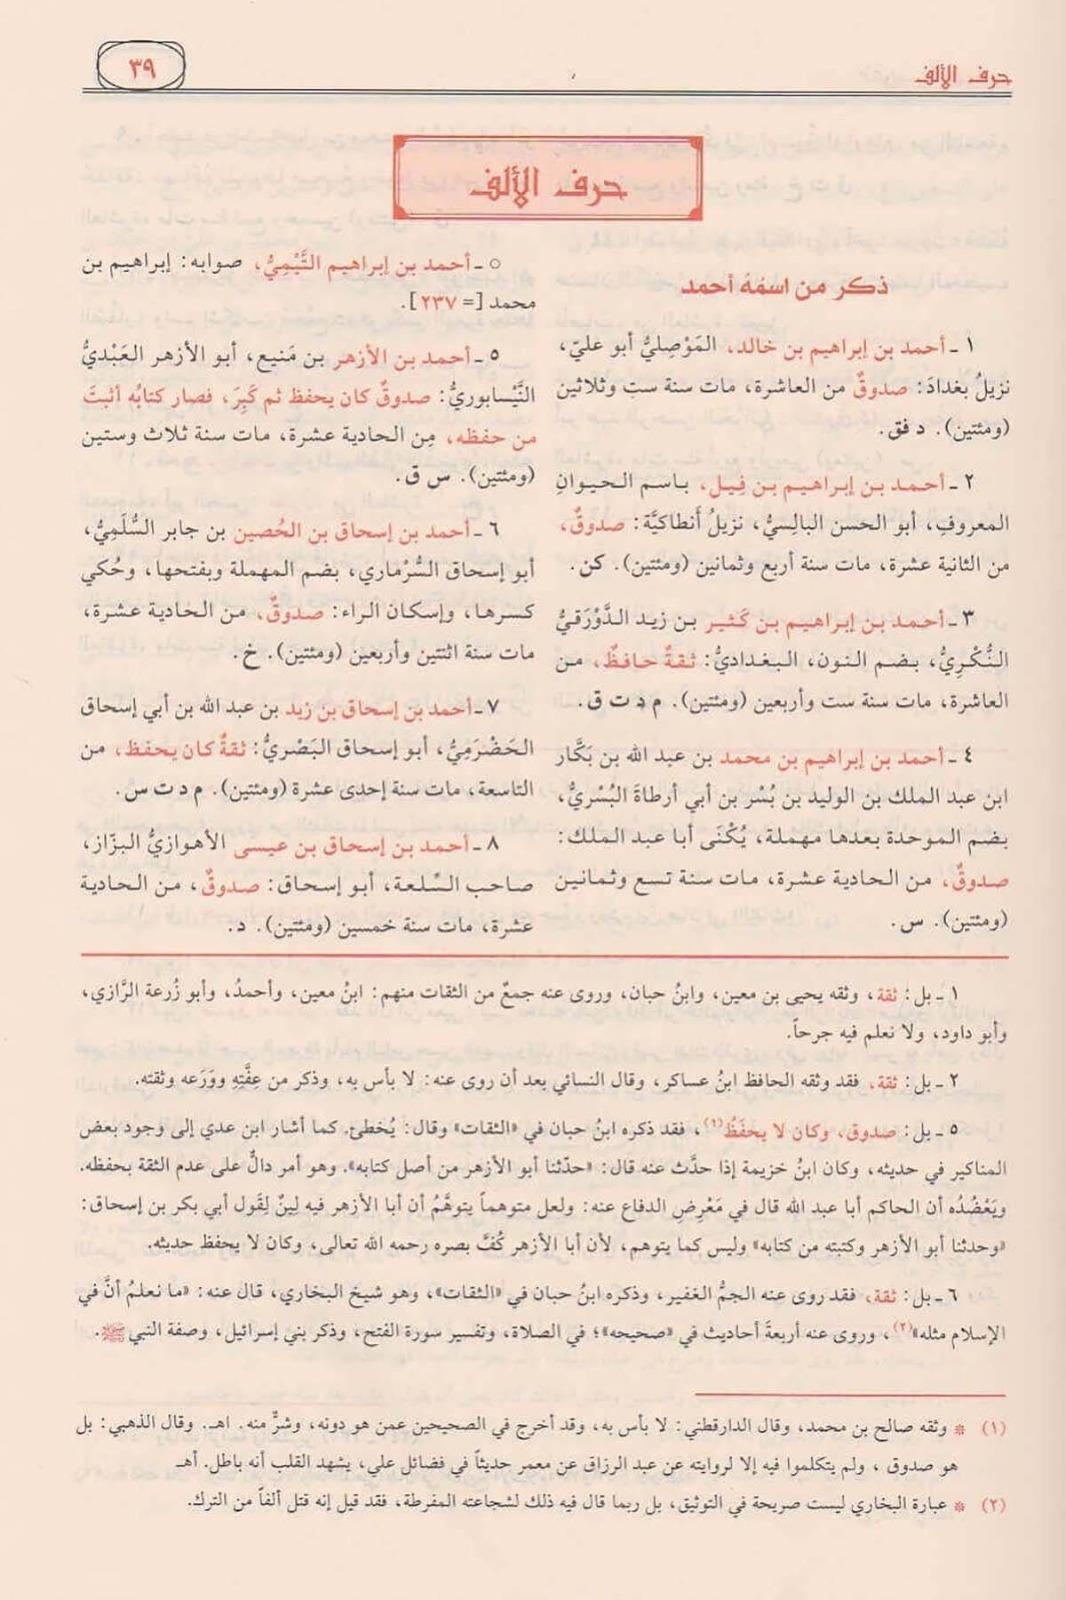 حرف الألف
٣٩
حرف الألف
ذكر من اسمُهُ أحمد
١ ـ أحمد بن إبراهيم بن خالد، المَوْصِليُّ أبو عليّ،
نزيلُ بغدادَ: صدوقٌ من العاشرة، مات سنة ست وثلاثين
(ومئتين). د فق.
٢ ـ أحمد بن إبراهيم بن فِيل، باسم الحيوانِ
المعروفِ، أبو الحسن البالِسيُّ، نزيلُ أَنطاكيَّة: صدوقٌ،
من الثانية عشرة، مات سنة أربع وثمانين (ومئتين). كن.
٣ ـ أحمد بن إبراهيم بن كَثير بن زيد الدَّوْرَقيُّ
النُّكْرِيُّ، بضم النون، البغداديُّ: ثقةٌ حافظٌ، من
العاشرة، مات سنة ست وأربعين (ومئتين). م د ت ق.
٤ ـ أحمد بن إبراهيم بن محمد بن عبد الله بن بَكَّار
ابن عبد الملك بن الوليد بن بُسْر بن أبي أرطاةَ البُسْريُّ،
بضم الموحدة بعدها مهملة، يُكْنَى أبا عبد الملك:
صدوقٌ، من الحادية عشرة، مات سنة تسع وثمانين
(ومئتين). س.
٥ ـ أحمد بن إبراهيم التَّيْمِيُّ، صوابه: إبراهيم بن
محمد [= ٢٣٧].
٥ ـ أحمد بن الأزهر بن مَنيع، أبو الأزهر العَبْديُّ
النَّيْسابوريُّ: صدوقٌ كان يحفظ ثم كَبِرَ، فصار كتابُه أثبتَ
من حفظه، مِن الحادية عشرة، مات سنة ثلاث وستين
(ومئتين). س ق.
٦ ـ أحمد بن إسحاق بن الحُصين بن جابر السُّلَميُّ،
أبو إسحاق السُّرْماري، بضم المهملة وبفتحها، وحُكي
كسرها، وإسكان الراء: صدوقٌ، من الحادية عشرة،
مات سنة اثنتين وأربعين (ومئتين). خ.
٧ ـ أحمد بن إسحاق بن زيد بن عبد الله بن أبي إسحاق
الحَضْرَميُّ، أبو إسحاق البَصْريُّ: ثقةٌ كان يحفظ، من
التاسعة، مات سنة إحدى عشرة (ومئتين). م د ت س.
٨ ـ أحمد بن إسحاق بن عيسى الأهوازيُّ البزّاز،
صاحب السِّلعة، أبو إسحاق: صدوقٌ، من الحادية
عشرة، مات سنة خمسين (ومئتين). د.
١ ـ بل: ثقة، وثقه يحيى بن معين، وابنُ حبان، وروى عنه جمعٌ من الثقات منهم: ابنُ معين، وأحمدُ، وأبو زُرعة الرَّازي،
وأبو داود، ولا نعلم فيه جرحاً.
٢ ـ بل: ثقة، فقد وثقه الحافظ ابنُ عساكر، وقال النسائي بعد أن روى عنه: لا بأس به، وذكر من عِفَّتِهِ ووَرَعه وثقته.
٥ ـ بل: صدوق، وكان لا يحفَظُ(١)، فقد ذكره ابنُ حبان في «الثقات» وقال: يُخطئ. كما أشار ابن عدي إلى وجود بعض
المناكير في حديثه، وكان ابنُ خزيمة إذا حدَّث عنه قال: «حدّثنا أبو الأزهر من أصل كتابه». وهو أمر دالٌّ على عدم الثقة بحفظه.
ويَعْضُدُه أن الحاكم أبا عبد الله قال في مَعْرِضِ الدفاع عنه: ولعل متوهماً يتوهَّمُ أن أبا الأزهر فيه لِينٌ لِقَول أبي بكر بن إسحاق:
«وحدثنا أبو الأزهر وكتبته من كتابه» وليس كما يتوهم، لأن أبا الأزهر كُفَّ بصره رحمه الله تعالى، وكان لا يحفظ حديثه.
٦ ـ بل: ثقة، فقد روى عنه الجمُّ الغفير، وذكره ابنُ حبان في «الثقات»، وهو شيخ البخاري، قال عنه: «ما نعلمُ أنَّ في
الإسلام مثله»(٢)، وروى عنه أربعةَ أحاديث في «صحيحه»؛ في الصلاة، وتفسير سورة الفتح، وذكر بني إسرائيل، وصفة النبي ﷺ.
(١) * وثقه صالح بن محمد، وقال الدارقطني: لا بأس به، وقد أخرج في الصحيحين عمن هو دونه، وشرٌّ منه. اهـ. وقال الذهبي: بل
هو صدوق، ولم يتكلموا فيه إلا لروايته عن عبد الرزاق عن معمر حديثاً في فضائل علي، يشهد القلب أنه باطل. أهـ
(٢) * عبارة البخاري ليست صريحة في التوثيق، بل ربما قال فيه ذلك لشجاعته المفرطة، فقد قيل إنه قتل ألفاً من الترك.